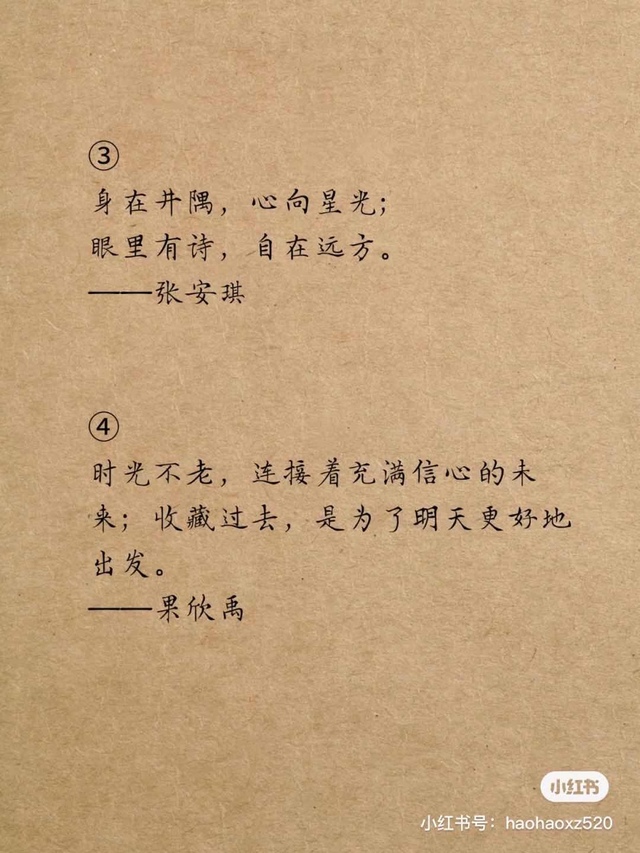 ③
身在井隅，心向星光；
眼里有诗，自在远方。
——张安琪
④
时光不老，连接着充满信心的未
来；收藏过去，是为了明天更好地
出发。
——果欣禹
小红书
小红书号：haohaoxz520